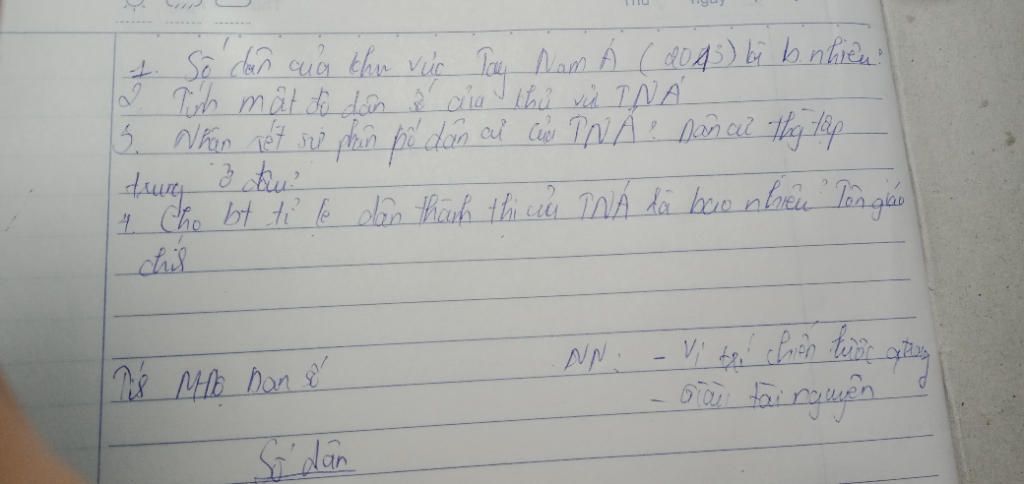 Thứ ngày
1. Số dân của khu vực Tây Nam Á (2013) là b.nhiêu?
2. Tính mật độ dân số của khu vực TNÁ
3. Nhận xét sự phân bố dân cư của TNÁ? Dân cư thg tập
trung ở đâu?
4. Cho bt tỉ lệ dân thành thị của TNÁ là bao nhiêu? Tôn giáo
chính
MĐ Dân số NN: - Vị trí chiến lược
- Giàu tài nguyên
Số dân